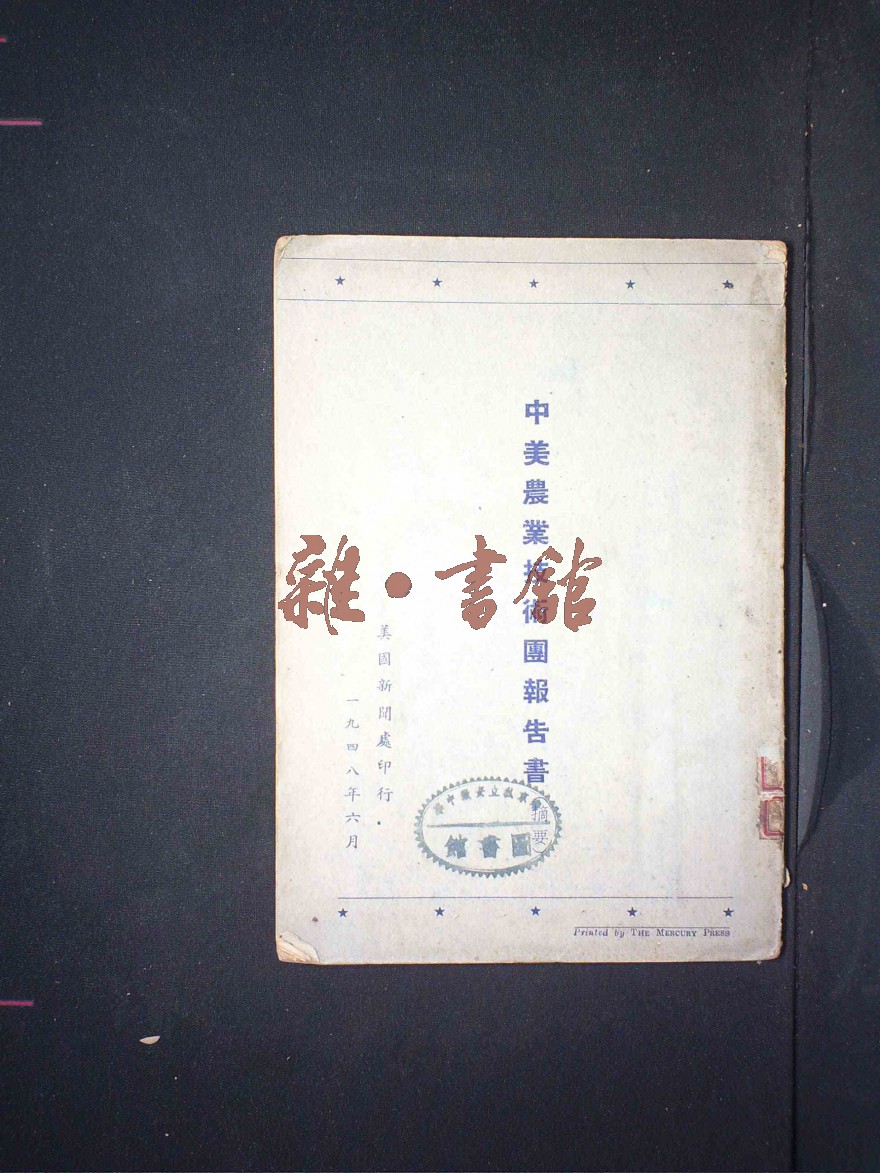 中美農業技術團報告書
（摘要）
美國新聞處印行．
一九四八年六月
雜·書館
圖書館
Printed by THE MERCURY PRESS